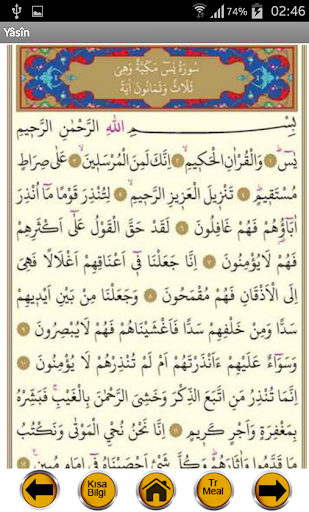 74% 02:46
Yâsîn
سُورَةُ يٰسٓ مَكِّيَّةٌ وَهِيَ
ثَلَاثٌ وَثَمَانُونَ اٰيَةً
بِسْمِ اللّٰهِ الرَّحْمٰنِ الرَّحِيمِ
يٰسٓ ۝١ وَالْقُرْاٰنِ الْحَكِيمِ ۝٢ اِنَّكَ لَمِنَ الْمُرْسَلِينَ ۝٣ عَلٰى صِرَاطٍ
مُسْتَقِيمٍ ۝٤ تَنْزِيلَ الْعَزِيزِ الرَّحِيمِ ۝٥ لِتُنْذِرَ قَوْمًا مَٓا اُنْذِرَ
اٰبَٓاؤُ۬هُمْ فَهُمْ غَافِلُونَ ۝٦ لَقَدْ حَقَّ الْقَوْلُ عَلٰٓى اَكْثَرِهِمْ
فَهُمْ لَا يُؤْمِنُونَ ۝٧ اِنَّا جَعَلْنَا فِٓي اَعْنَاقِهِمْ اَغْلَالًا فَهِيَ
اِلَى الْاَذْقَانِ فَهُمْ مُقْمَحُونَ ۝٨ وَجَعَلْنَا مِنْ بَيْنِ اَيْدِيهِمْ
سَدًّا وَمِنْ خَلْفِهِمْ سَدًّا فَاَغْشَيْنَاهُمْ فَهُمْ لَا يُبْصِرُونَ
۝٩ وَسَوَٓاءٌ عَلَيْهِمْ ءَاَنْذَرْتَهُمْ اَمْ لَمْ تُنْذِرْهُمْ لَا يُؤْمِنُونَ ۝١٠
اِنَّمَا تُنْذِرُ مَنِ اتَّبَعَ الذِّكْرَ وَخَشِيَ الرَّحْمٰنَ بِالْغَيْبِ فَبَشِّرْهُ
بِمَغْفِرَةٍ وَاَجْرٍ كَرِيمٍ ۝١١ اِنَّا نَحْنُ نُحْيِ الْمَوْتٰى وَنَكْتُبُ
مَا قَدَّمُوا وَاٰثَارَهُمْ وَكُلَّ شَيْءٍ اَحْصَيْنَاهُ فِٓي اِمَامٍ مُبِينٍ ۝١٢
Kısa Bilgi
Tr Meal